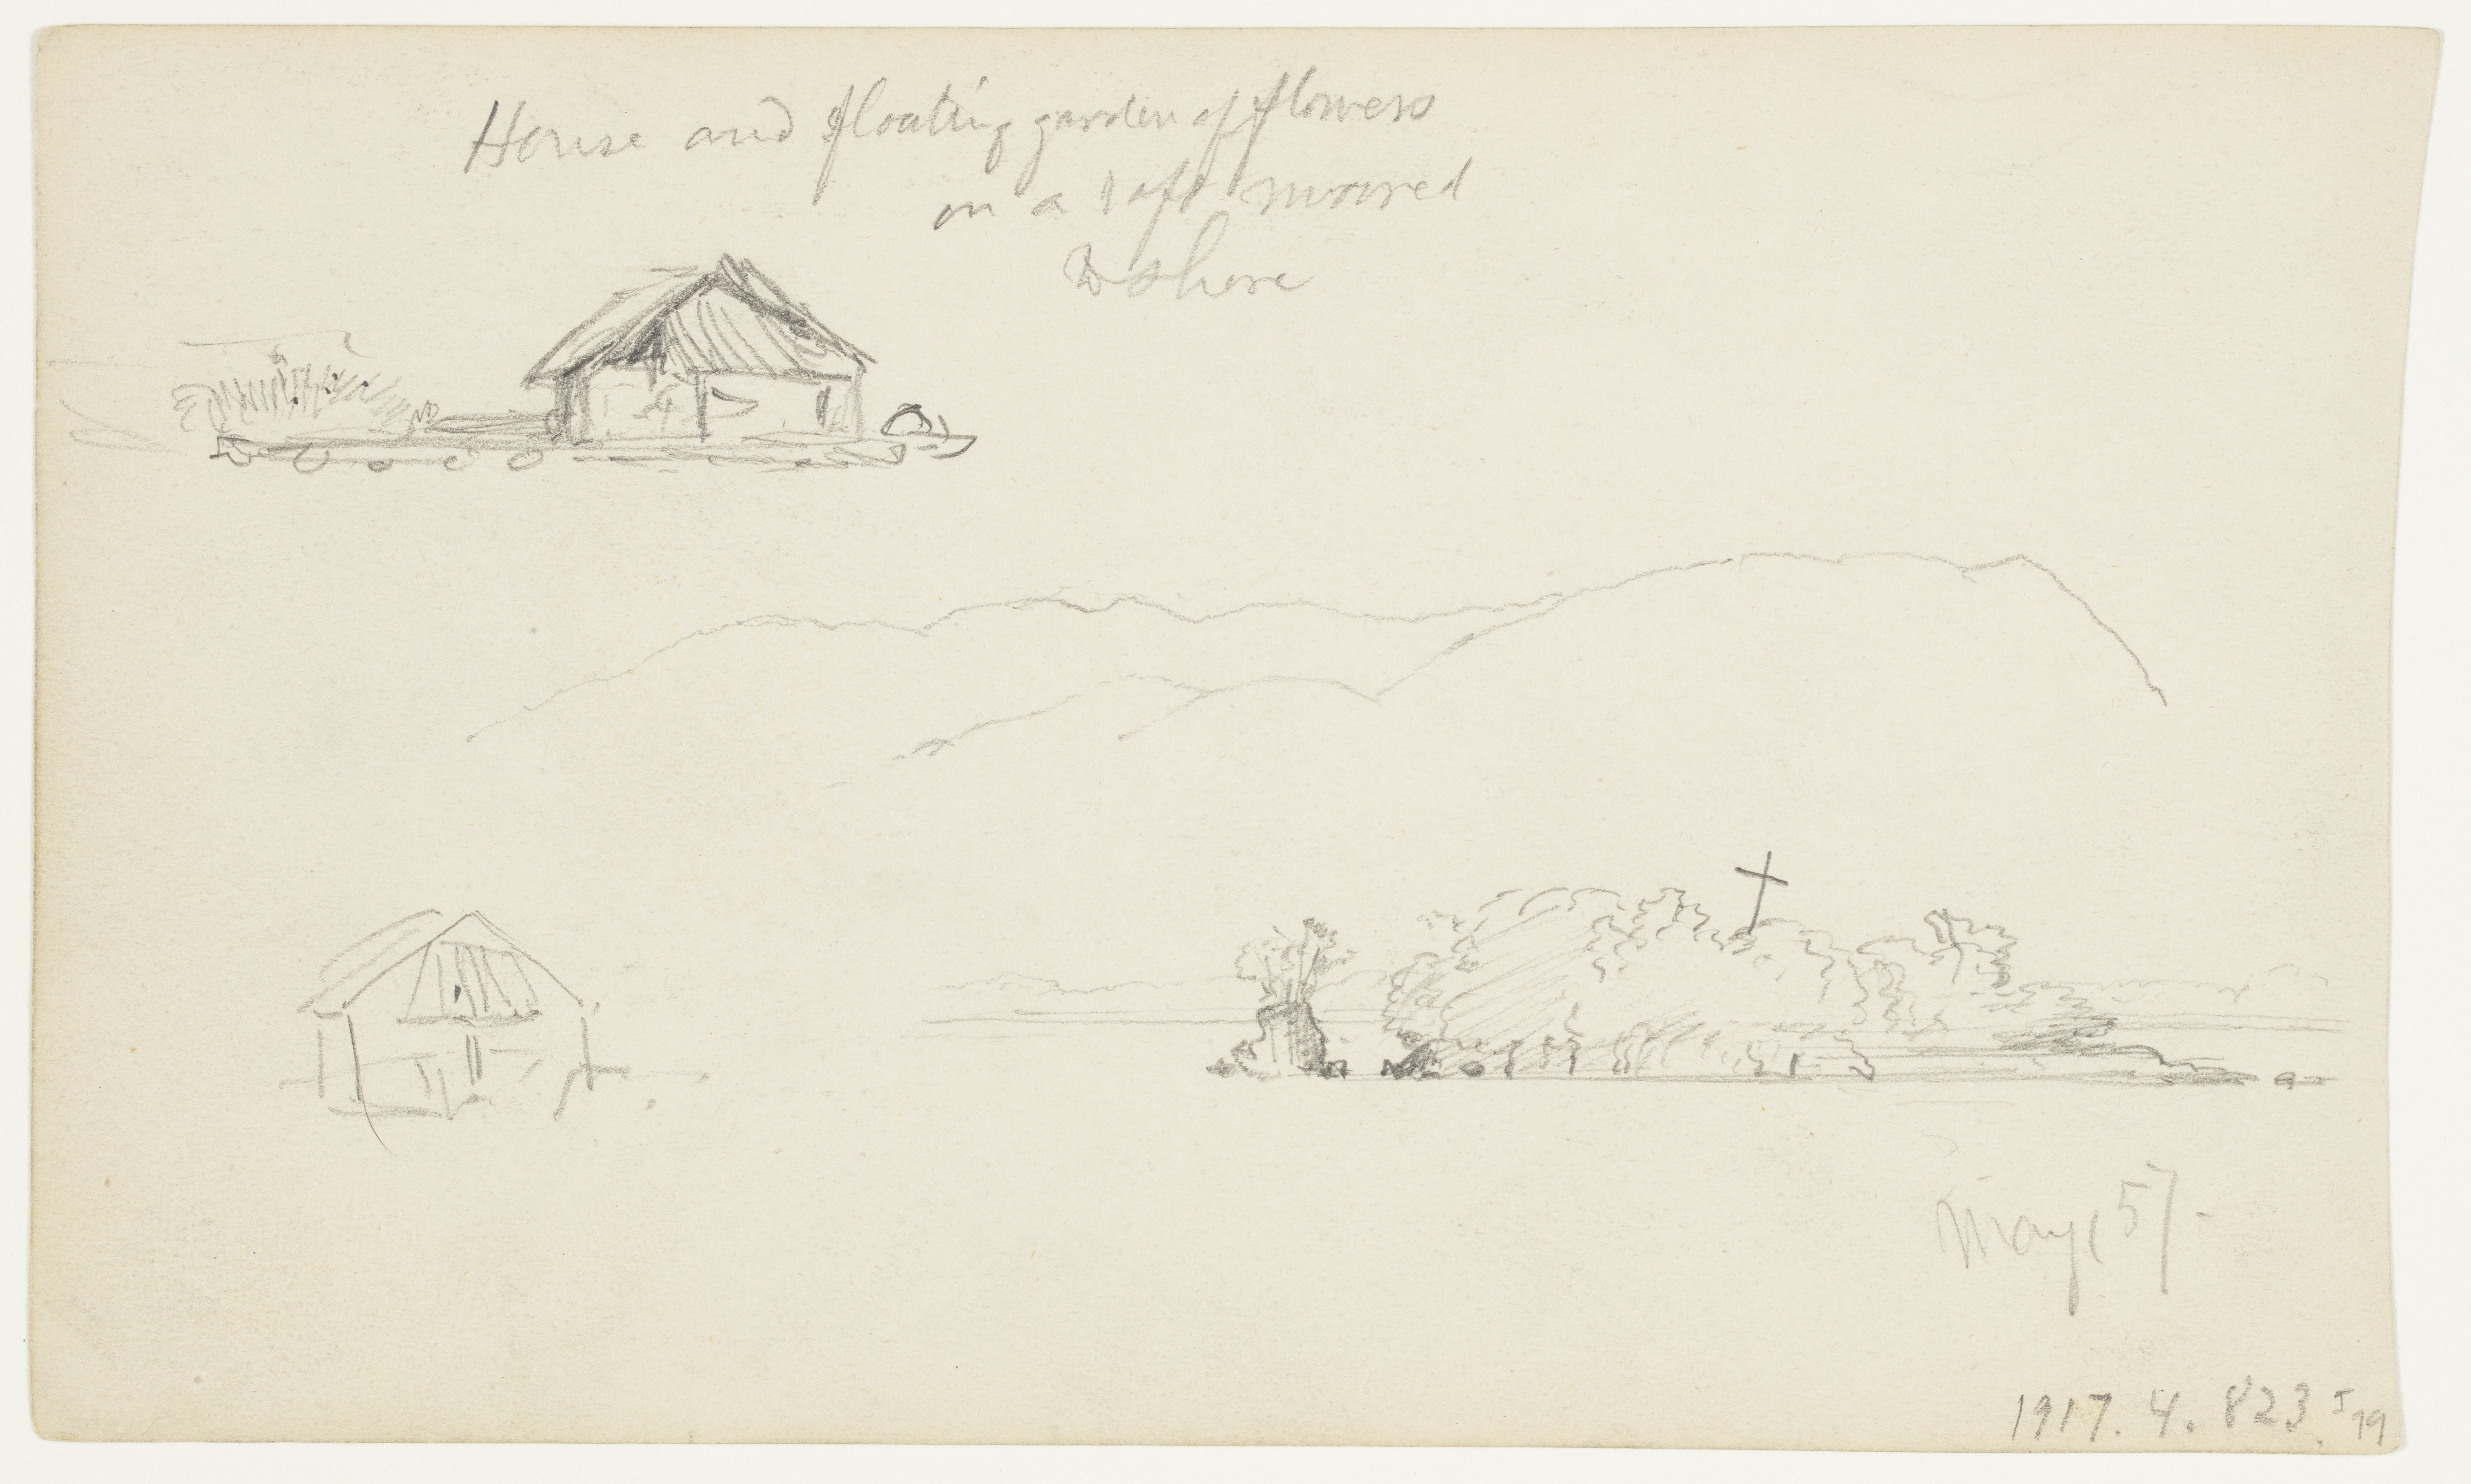 House and floating garden of flowers
on a raft moored
to shore
May, 57-
1917. 4. 823 I 79